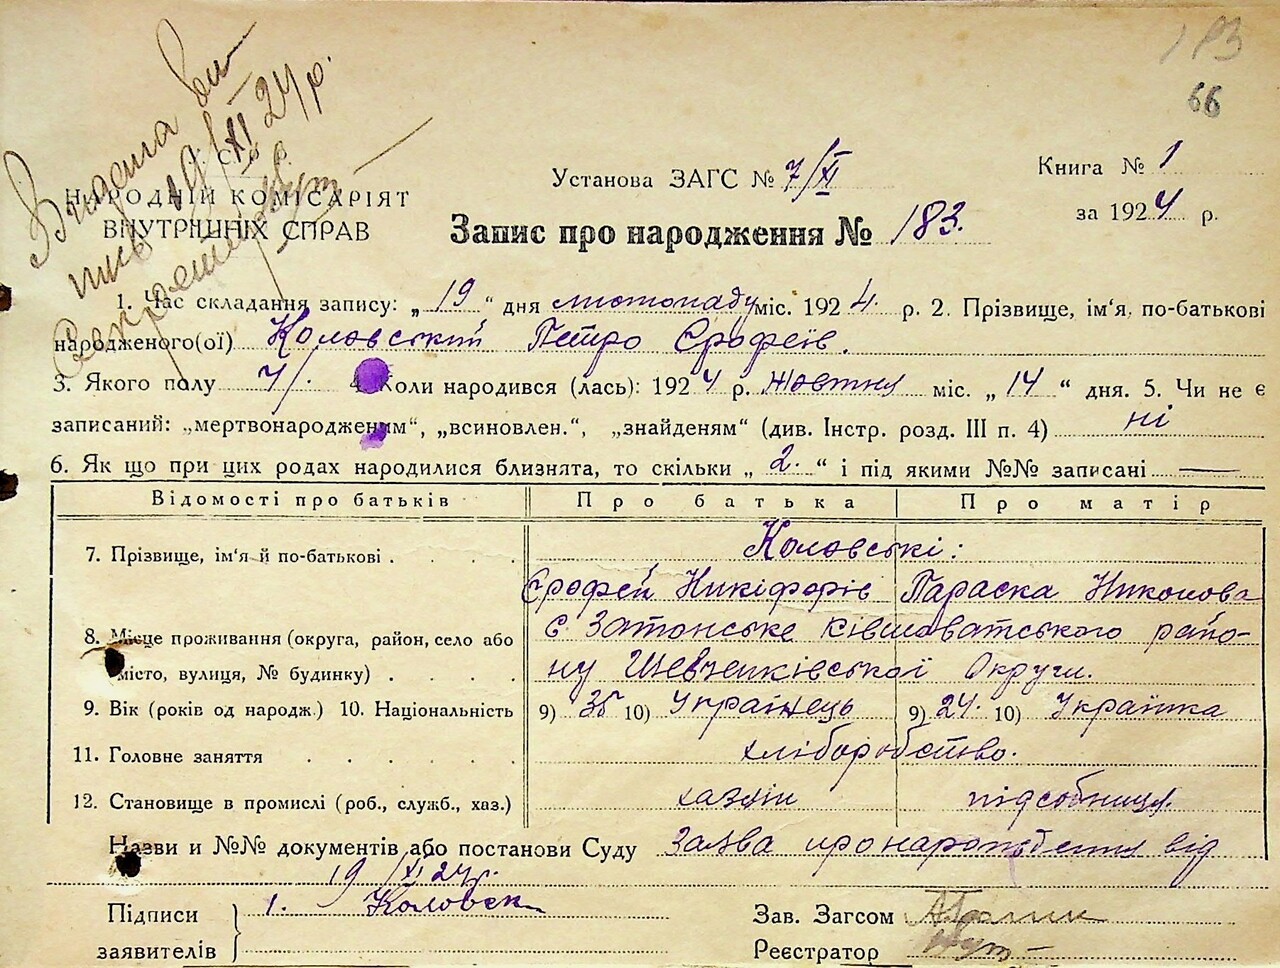 183
66
Видана ви
19/XI 24 р.
У. С. Р. Р.
НАРОДНІЙ КОМІСАРІЯТ
ВНУТРІШНІХ СПРАВ
Установа ЗАГС № 7/XI
Книга № 1
за 1924 р.
Запис про народження № 183.
1. Час складання запису: „ 19 “ дня листопаду міс. 1924. р. 2. Прізвище, ім'я, по-батькові
народженого(ої) Коловський Петро Єрофеїв.
3. Якого полу ч. 4. Коли народився (лась): 1924 р. жовтня міс. „ 14 “ дня. 5. Чи не є
записаний: „мертвонародженим“, „всиновлен.“, „знайденям“ (див. Інстр. розд. III п. 4) ні
6. Як що при цих родах народилися близнята, то скільки „ 2. “ і під якими №№ записані —
Відомості про батьків Про батька Про матір
7. Прізвище, ім'я й по-батькові . . . . Коловські:
Єрофей Никіфорів Параска Никонова
8. Місце проживання (округа, район, село або с. Затонське Ківшоватського райо-
місто, вулиця, № будинку) . . . . ну Шевченківської Округи.
9. Вік (років од народж.) 10. Національність 9) 35 10) Українець 9) 24. 10) Українка
11. Головне заняття . . . . . . хліборобство.
12. Становище в промислі (роб., служб., хаз.) хазяін підсобниця.
Назви и №№ документів або постанови Суду Заява про народження від
19/XI 24 р.
Підписи 1. Коловск
заявителів
Зав. Загсом
Реєстратор